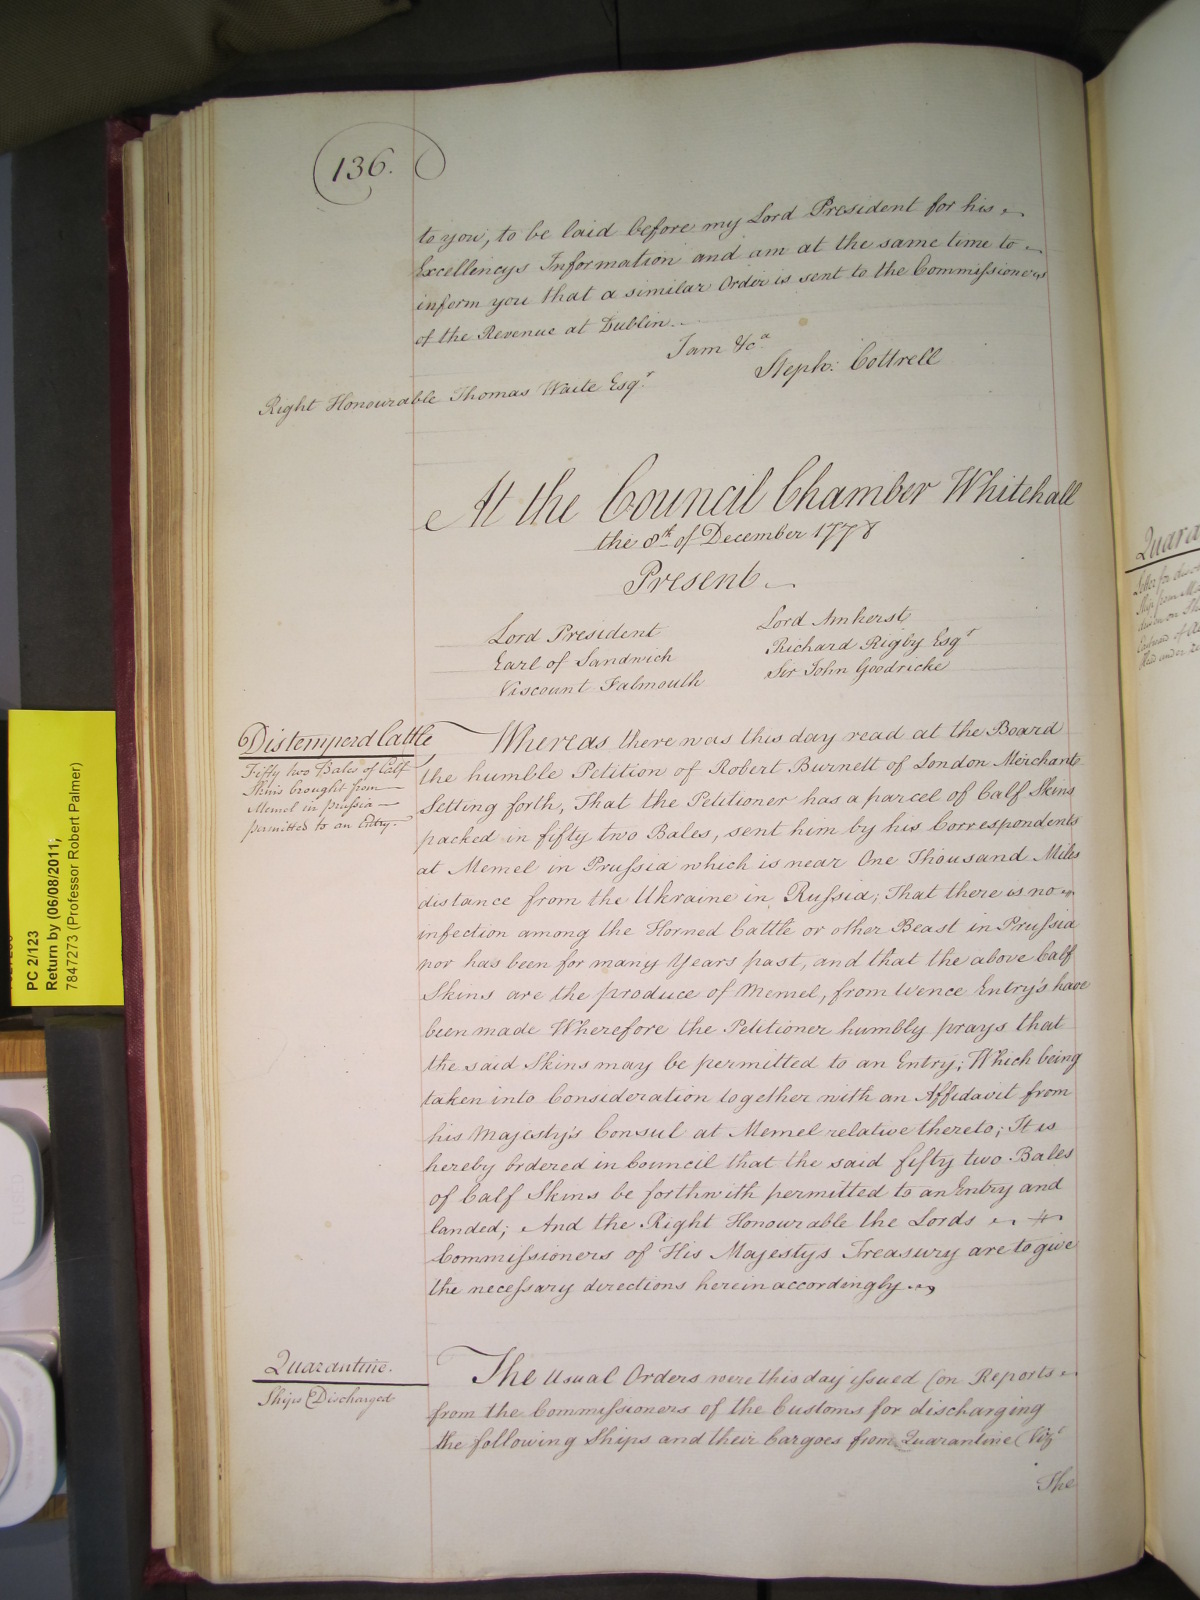 136.
to you, to be laid before my Lord President for his
Excellencys Information and am at the same time to
inform you that a similar Order is sent to the Commissioners
of the Revenue at Dublin.
I am &c.a
Steph: Cottrell
Right Honourable Thomas Waite Esq.r
At the Council Chamber Whitehall
the 8th of December 1778
Present
Lord President
Earl of Sandwich
Viscount Falmouth
Lord Amherst
Richard Rigby Esq.r
Sir John Goodricke
Distemperd Cattle
Fifty two Bales of Calf
Skins brought from
Memel in Prussia
permitted to an Entry.
Whereas there was this day read at the Board
the humble Petition of Robert Burnett of London Merchant
Setting forth, That the Petitioner has a parcel of Calf Skins
packed in fifty two Bales, sent him by his Correspondents
at Memel in Prussia which is near One Thousand Miles
distance from the Ukraine in Russia; That there is no
infection among the Horned Cattle or other Beast in Prussia
nor has been for many Years past, and that the above Calf
Skins are the produce of Memel, from wence Entry's have
been made Wherefore the Petitioner humbly prays that
the said Skins may be permitted to an Entry; Which being
taken into Consideration together with an Affidavit from
his Majesty's Consul at Memel relative thereto; It is
hereby Ordered in Council that the said fifty two Bales
of Calf Skins be forthwith permitted to an Entry and
landed; And the Right Honourable the Lords
Commissioners of His Majestys Treasury are to give
the necessary directions herein accordingly
Quarantine.
Ships Discharged
The Usual Orders were this day issued (on Reports
from the Commissioners of the Customs for discharging
the following Ships and their Cargoes from Quarantine (Vizt
The
PC 2/123
Return by (06/08/2011,
7847273 (Professor Robert Palmer)
Quara